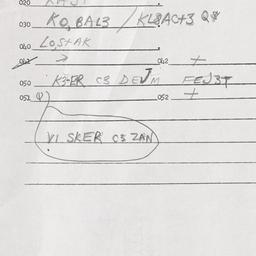 020
030 KO,BAL3 / KL3AC+3
040 LO,S+AK
042 → 042 +
050 K3-ER C3 DEJM FEJ3T
052 052 +
VI SKER C3 ZAN